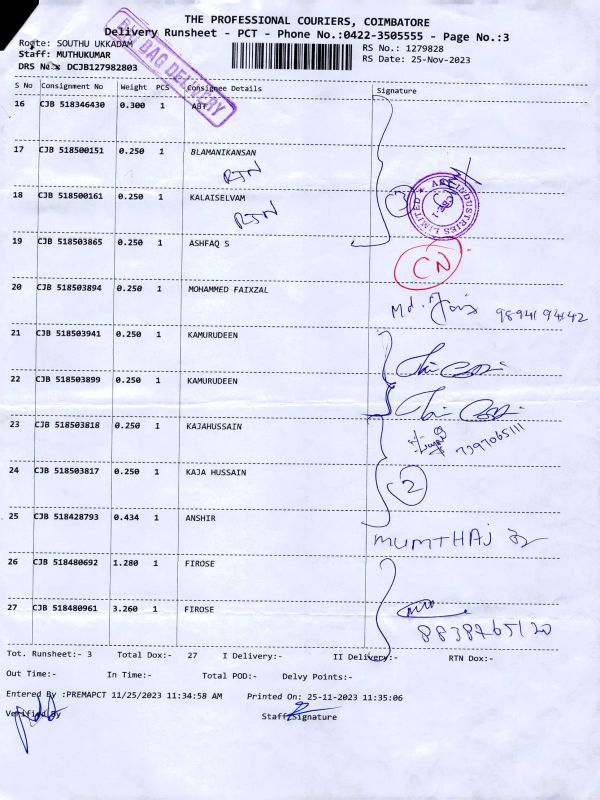 THE PROFESSIONAL COURIERS, COIMBATORE
Delivery Runsheet - PCT - Phone No.:0422-3505555 - Page No.:3
Route: SOUTHU UKKADAM
RS No.: 1279828
Staff: MUTHUKUMAR
RS Date: 25-Nov-2023
DRS No.: DCJB127982803
BAG DELIVERY
S No Consignment No Weight PCS Consignee Details Signature
16 CJB 518346430 0.300 1 ABT
17 CJB 518500151 0.250 1 BLAMANIKANSAN
RTN
18 CJB 518500161 0.250 1 KALAISELVAM
RTN
3
INDUSTRIES LIMITED
19 CJB 518503865 0.250 1 ASHFAQ S
CN
20 CJB 518503894 0.250 1 MOHAMMED FAIXZAL
Md. Faiz 9894194142
21 CJB 518503941 0.250 1 KAMURUDEEN
22 CJB 518503899 0.250 1 KAMURUDEEN
23 CJB 518503818 0.250 1 KAJAHUSSAIN
7397065111
24 CJB 518503817 0.250 1 KAJA HUSSAIN
2
25 CJB 518428793 0.434 1 ANSHIR
MUMTHAJ
26 CJB 518480692 1.280 1 FIROSE
27 CJB 518480961 3.260 1 FIROSE
8838765120
Tot. Runsheet:- 3 Total Dox:- 27 I Delivery:- II Delivery:- RTN Dox:-
Out Time:- In Time:- Total POD:- Delvy Points:-
Entered By :PREMAPCT 11/25/2023 11:34:58 AM Printed On: 25-11-2023 11:35:06
Verified By Staff Signature